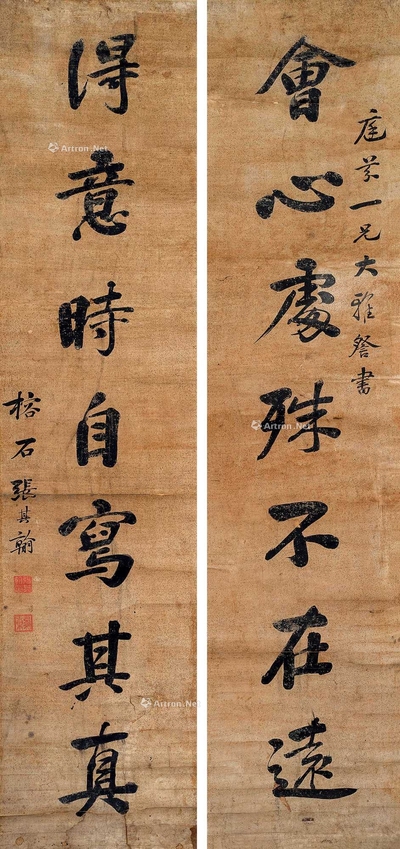 庭芝一兄大雅詧書
會心處殊不在遠
得意時自寫其真
榕石張其翰
Artron.Net
Artron.Net
Artron.Net
Artron.Net